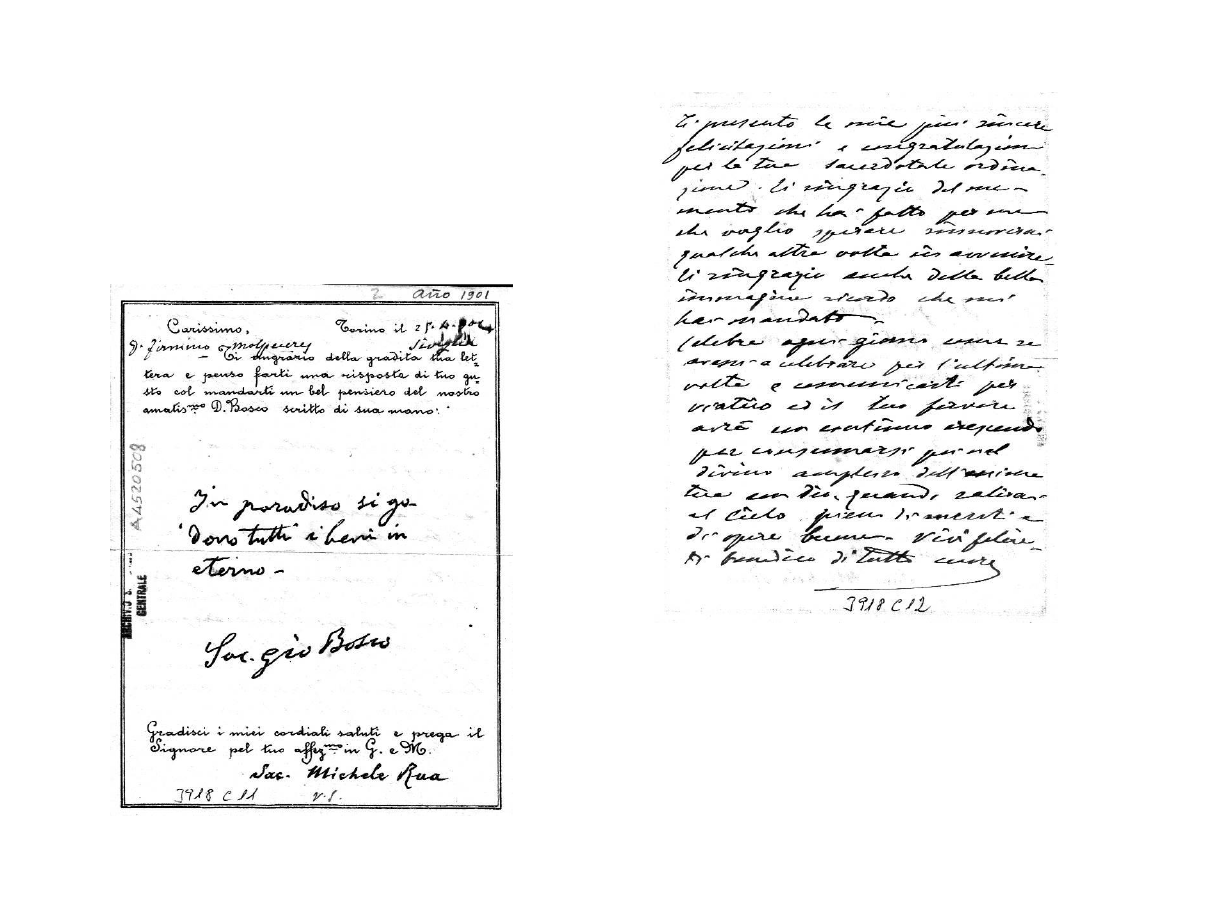 2 Año 1901
Carissimo, Torino il 25-4-901
D. Firmino Molpeceres Siviglia
– Ti ringrazio della gradita tua let-
tera e penso farti una risposta di tuo gu-
sto col mandarti un bel pensiero del nostro
amatis.mo D. Bosco scritto di sua mano:
A4520508
In paradiso si go-
dono tutti i beni in
eterno –
CENTRALE
Sac. Gio Bosco
Gradisci i miei cordiali saluti e prega il
Signore pel tuo affez.mo in G. e M.
Sac. Michele Rua
3918 C 11 V.S.
Ti presento le mie più sincere
felicitazioni e congratulazioni
per la tua sacerdotale ordina-
zione. Ti ringrazio del me-
mento che hai fatto per me
che voglio sperare rinnoverai
qualche altra volta in avvenire.
Ti ringrazio anche della bella
immagine ricordo che mi
hai mandato.
Celebra ogni giorno come se
avessi a celebrare per l'ultima
volta e comunicarti per
viatico ed il tuo fervore
avrà un continuo crescendo
per consumarsi poi nel
divino amplesso dell'unione
tua con Dio, quando salirai
al Cielo pieno di meriti e
di opere buone. Vivi felice.
Ti benedico di tutto cuore
3918 C 12